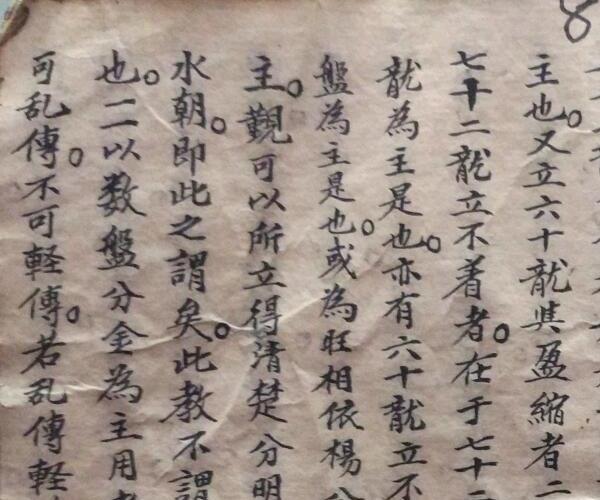 8
主也。又立六十龍與盈縮者二
七十二龍立不着者。在于七十二
龍為主是也。亦有六十龍立不
盤為主是也。或為旺相依楊公
主。觀可以所立得清楚分明
水朝。即此之謂矣。此教不謂
也。二以数盤分金為主用
可乱傳。不可軽傳。若乱傳軽